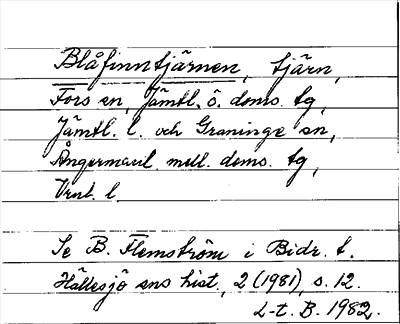 Blåfinntjärnen, tjärn,
Fors sn, Jämtl. ö. doms. tg,
Jämtl. l. och Graninge sn,
Ångermanl. mell. doms. tg,
Vnrl. l.
Se B. Flemström i Bidr. t.
Hällesjö sns hist., 2 (1981), s. 12.
L-t. B. 1982.